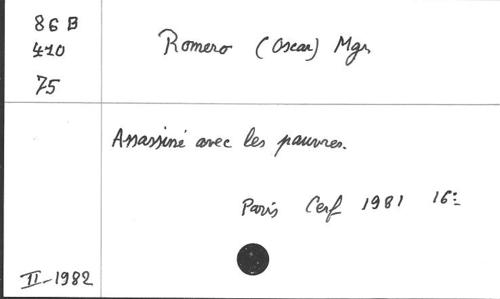 86 B
410
75
Romero (Oscar) Mgr
Assassiné avec les pauvres.
Paris Cerf 1981 16°
II-1982